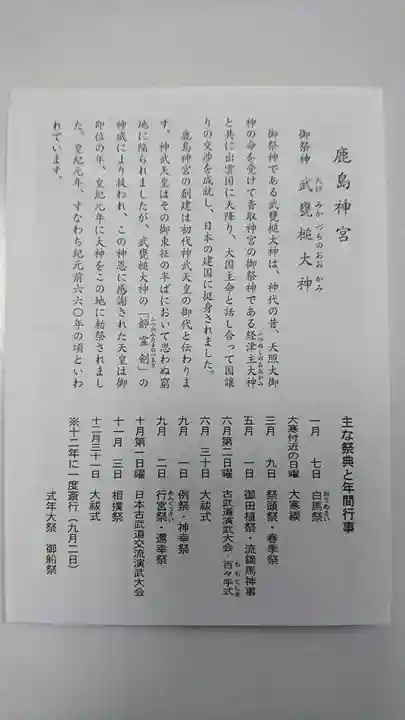 鹿島神宮
御祭神 武甕槌大神
たけ みか づちの おお かみ
御祭神である武甕槌大神は、神代の昔、天照大御
神の命を受けて香取神宮の御祭神である経津主大神
ふつぬしのおおかみ
と共に出雲国に天降り、大国主命と話し合って国譲
りの交渉を成就し、日本の建国に挺身されました。
鹿島神宮の創建は初代神武天皇の御代と伝わりま
す。神武天皇はその御東征の半ばにおいて思わぬ窮
地に陥られましたが、武甕槌大神の「韴霊剣」の
ふつのみたまのつるぎ
神威により救われ、この神恩に感謝された天皇は御
即位の年、皇紀元年に大神をこの地に勅祭されまし
た。皇紀元年、すなわち紀元前六六〇年の頃といわ
れています。
主な祭典と年間行事
一月 七日 白馬祭
おうめさい
大寒付近の日曜 大寒禊
三月 九日 祭頭祭・春季祭
五月 一日 御田植祭・流鏑馬神事
六月第二日曜 古武道演武大会・百々手式
ももてしき
六月 三十日 大祓式
九月 一日 例祭・神幸祭
九月 二日 行宮祭・還幸祭
あんぐうさい
十月第一日曜 日本古武道交流演武大会
十一月 三日 相撲祭
十二月三十一日 大祓式
※十二年に一度斎行(九月二日)
式年大祭 御船祭